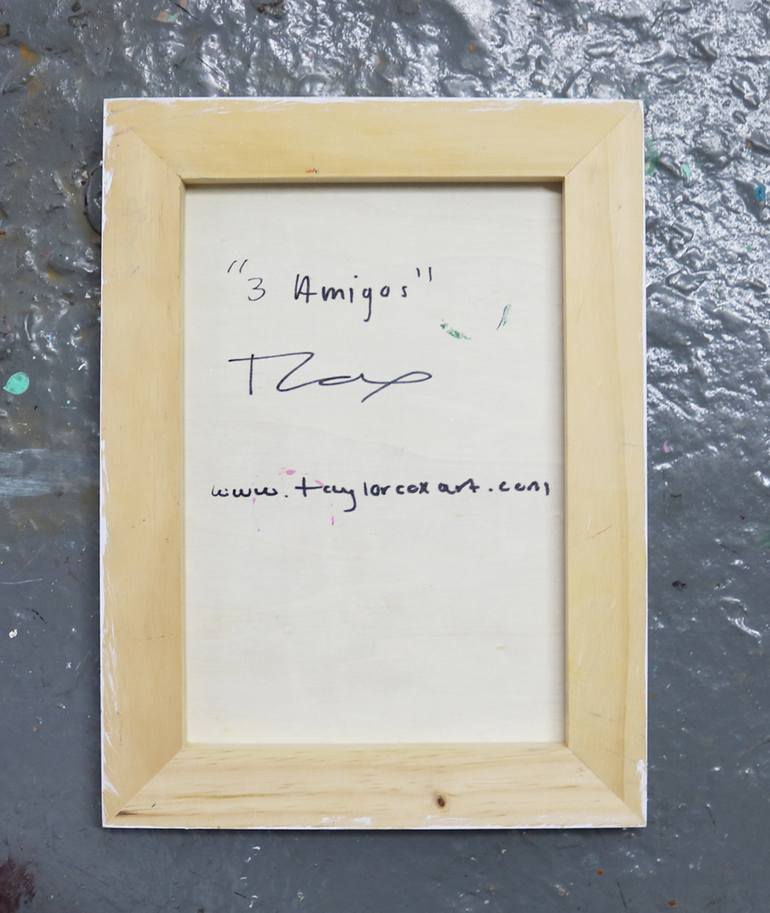 "3 Amigos"
TCox
www.taylorcoxart.com